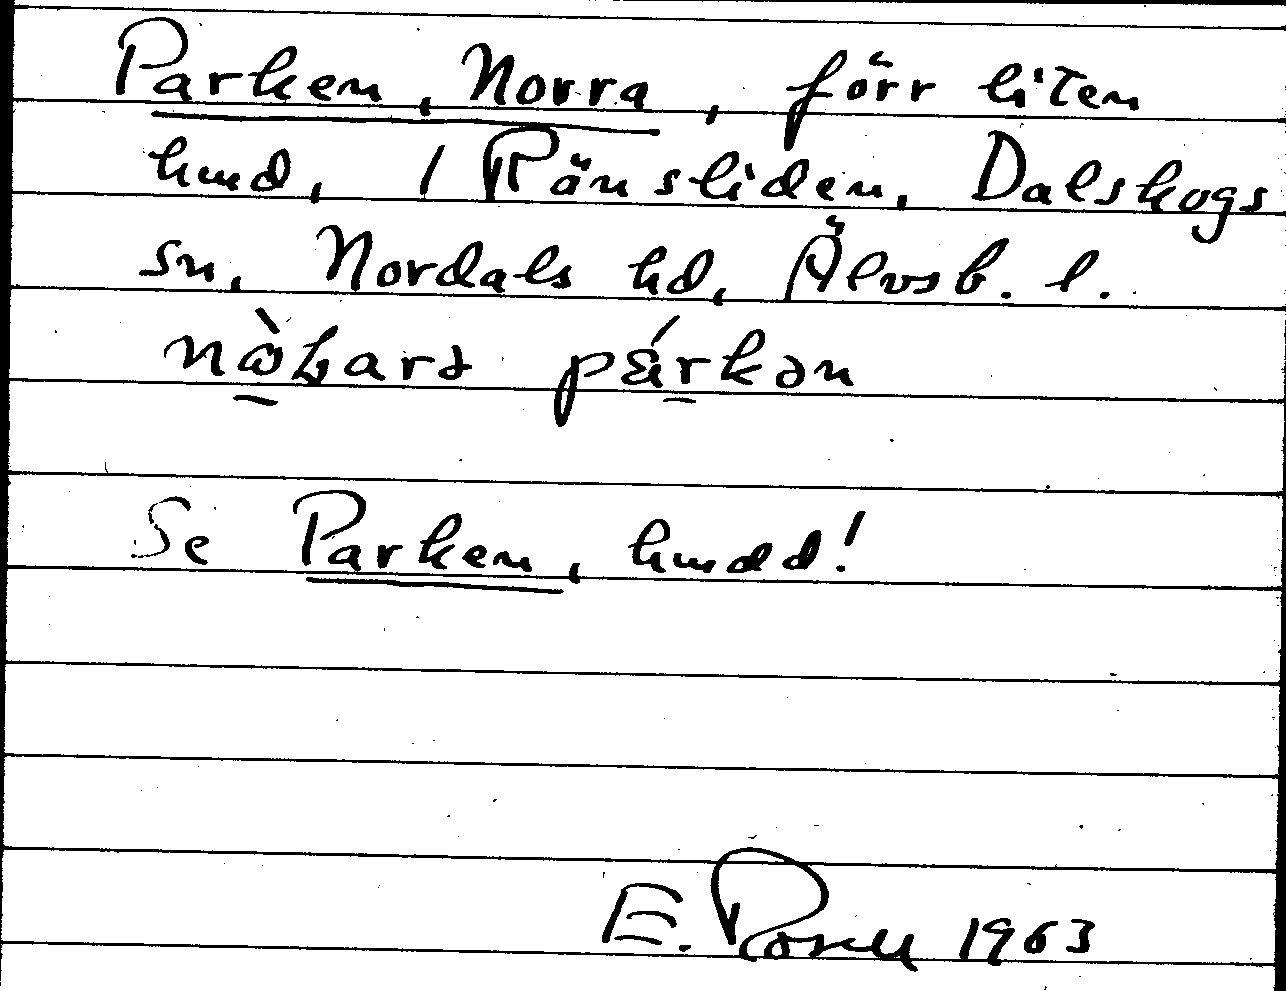 Parken, Norra, förr liten
lund, 1 Ränsliden, Dalskogs
sn, Nordals hd, Älvsb. l.
párkən
Se Parken, lund d!
E. Rosell 1963